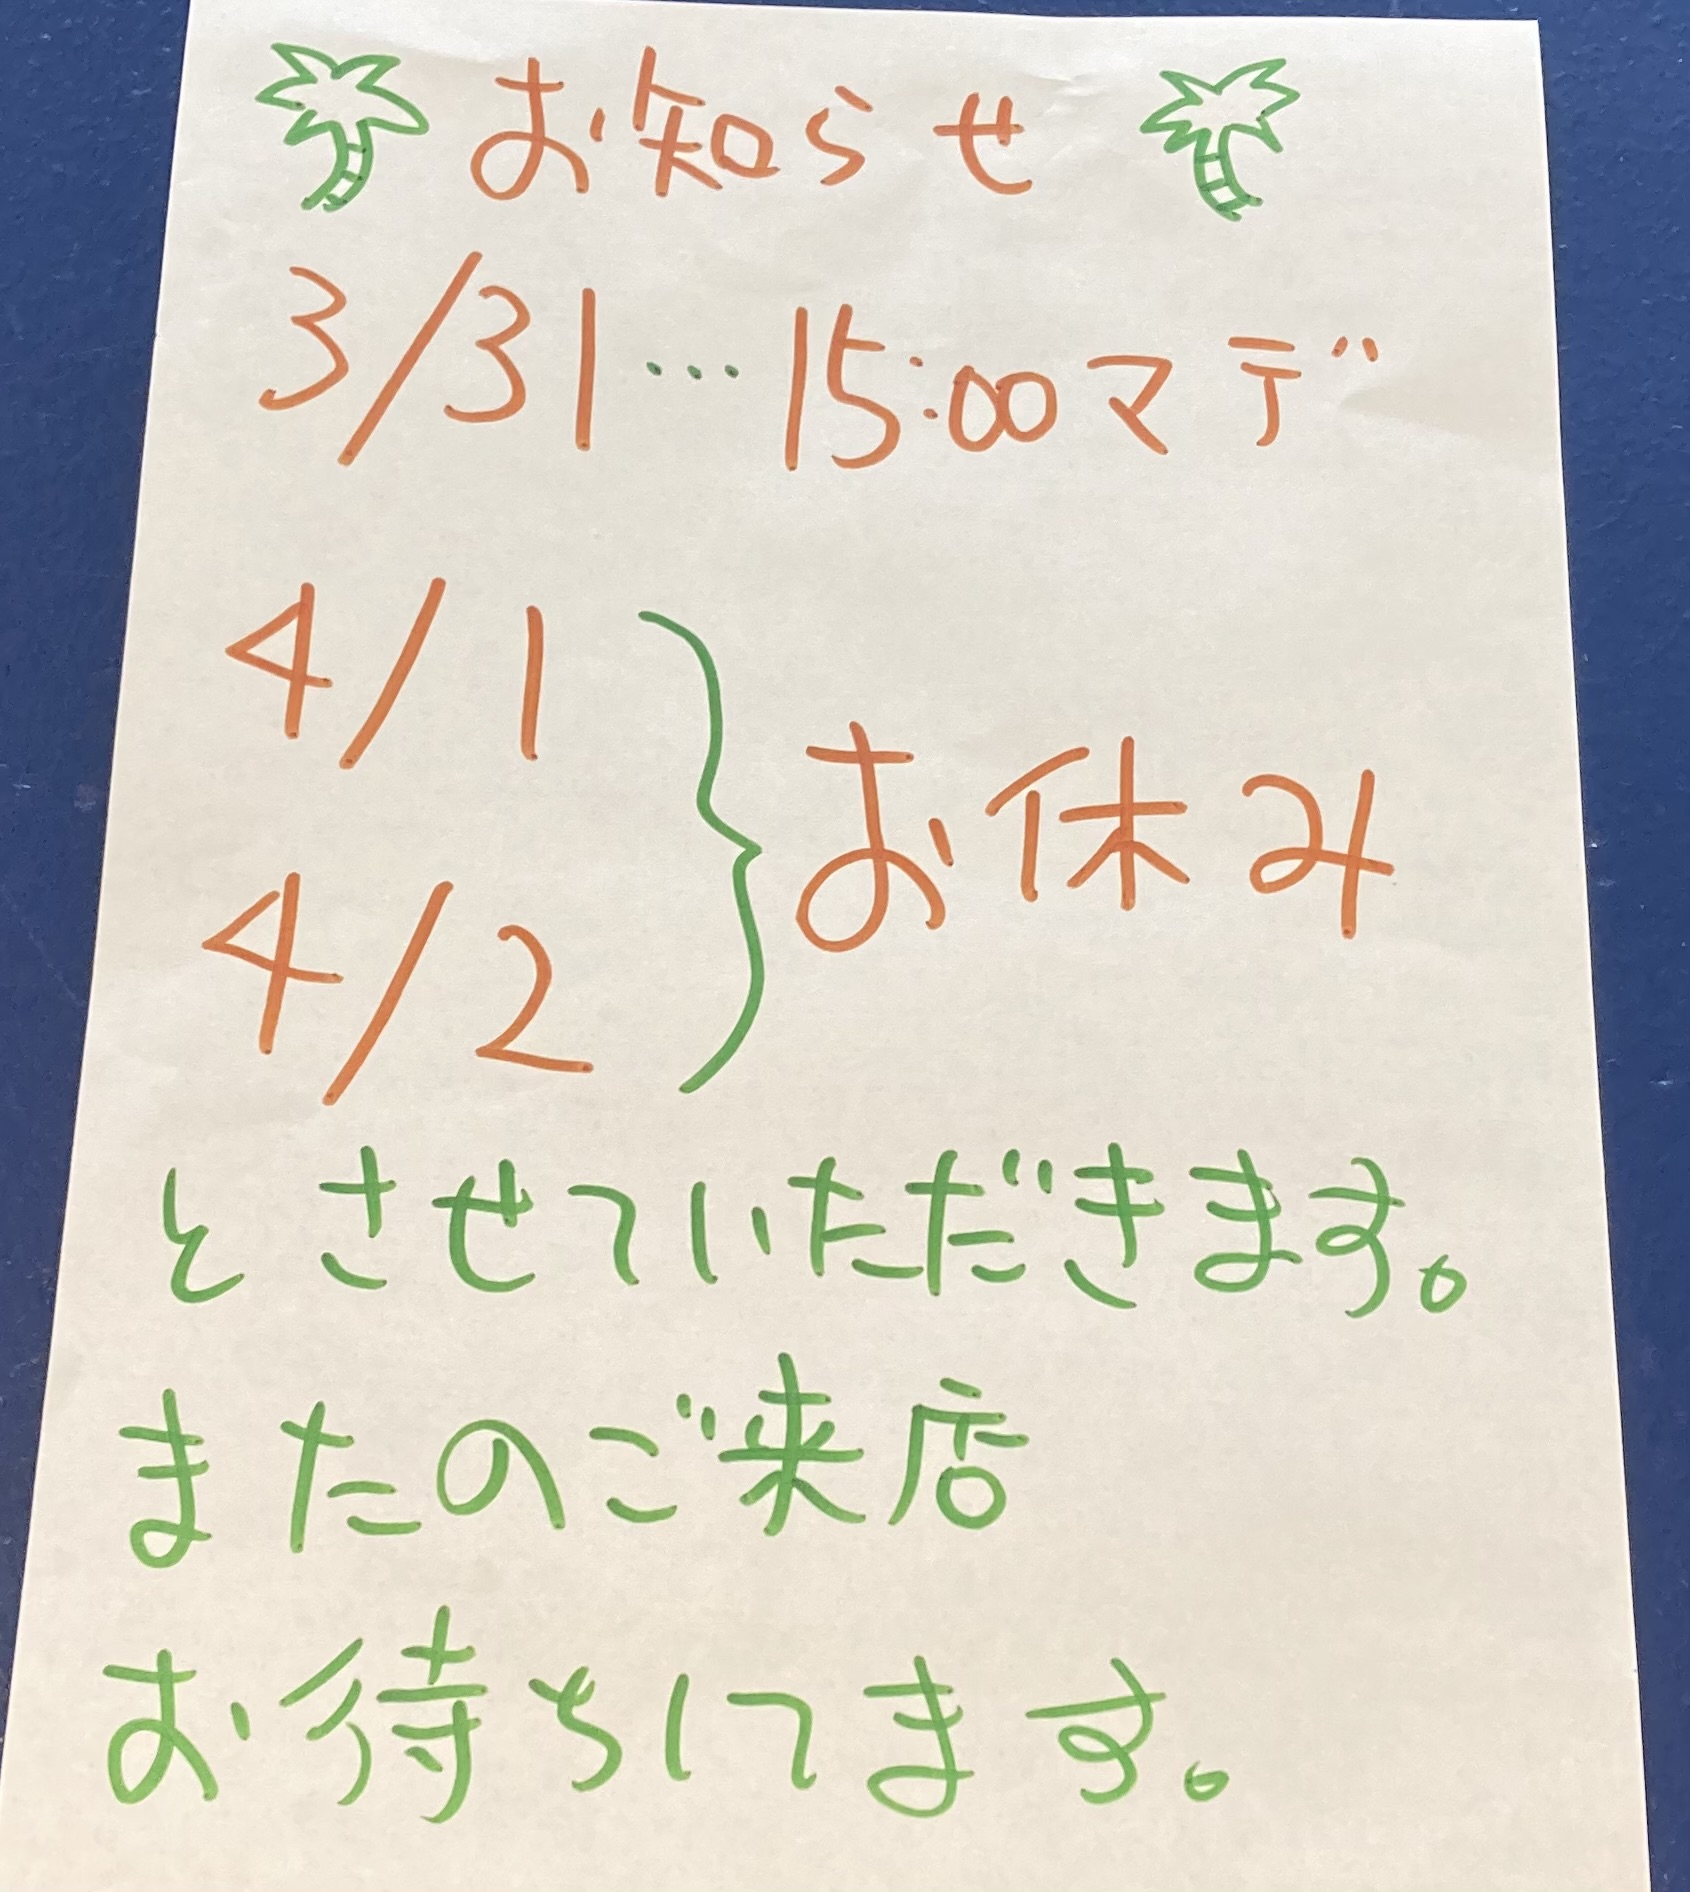 お知らせ
3/31…15:00マデ
4/1
4/2
お休み
とさせていただきます。
またのご来店
お待ちしてます。